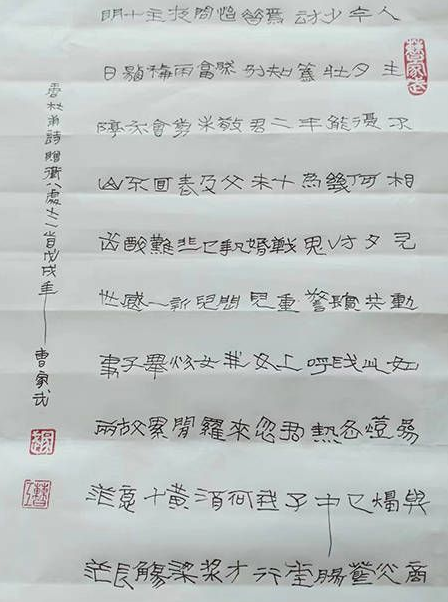 人生不相見動如參與商
今夕復何夕共此燈燭光
少壯能幾時鬢髮各已蒼
訪舊半為鬼驚呼熱中腸
焉知二十載重上君子堂
昔別君未婚兒女忽成行
怡然敬父執問我來何方
問答乃未已兒女羅酒漿
夜雨剪春韭新炊間黃粱
主稱會面難一舉累十觴
十觴亦不醉感子故意長
明日隔山岳世事兩茫茫
書杜甫詩贈衛八處士一首戊戌年曹家武